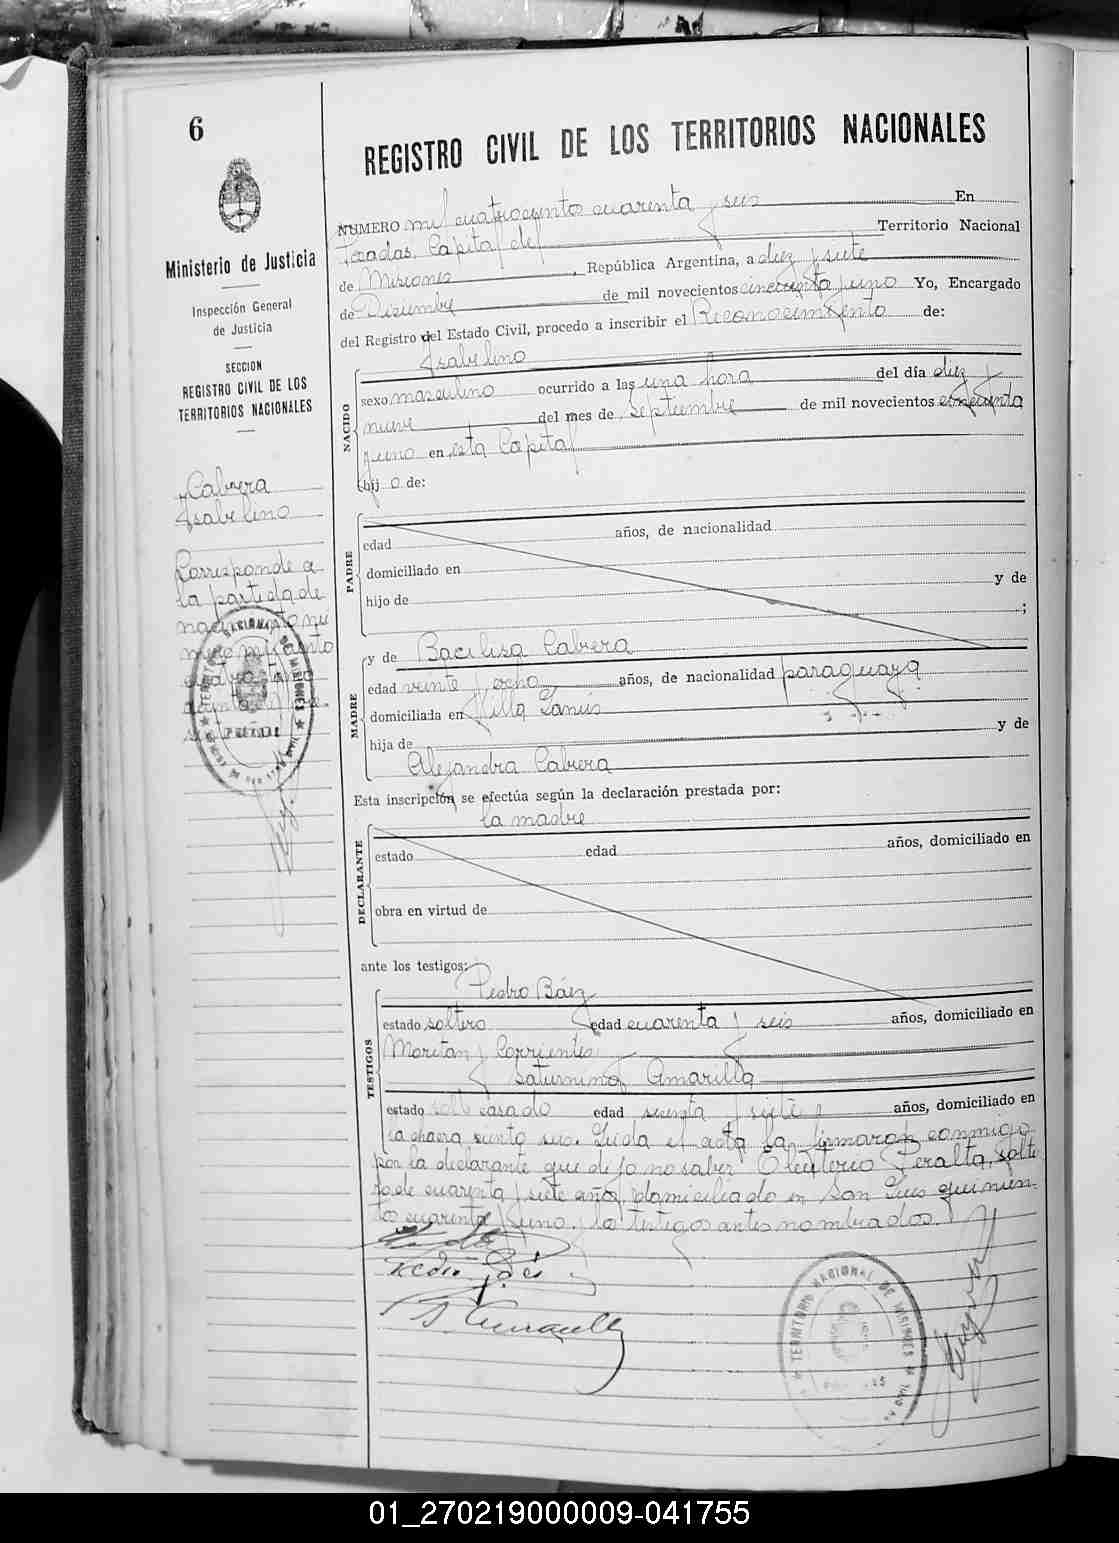 6
Ministerio de Justicia
Inspección General
de Justicia
SECCION
REGISTRO CIVIL DE LOS
TERRITORIOS NACIONALES
Cabrera
Isabelino
Corresponde a
la partida de
REGISTRO CIVIL DE LOS TERRITORIOS NACIONALES
NUMERO mil cuatrocientos cuarenta y seis En
Posadas, Capital del Territorio Nacional
de Misiones, República Argentina, a diez y siete
de Diciembre de mil novecientos cincuenta y uno Yo, Encargado
del Registro del Estado Civil, procedo a inscribir el Reconocimiento de:
Isabelino
NACIDO
sexo masculino ocurrido a las una hora del día diez y
nueve del mes de septiembre de mil novecientos cincuenta
y uno en esta Capital
hijo de:
PADRE
edad años, de nacionalidad
domiciliado en
hijo de y de
;
MADRE
y de Bacilisa Cabrera
edad veinte y ocho años, de nacionalidad paraguaya
domiciliada en Villa Lanús
hija de y de
Alejandra Cabrera
Esta inscripción se efectúa según la declaración prestada por:
la madre
DECLARANTE
estado edad años, domiciliado en
obra en virtud de
ante los testigos:
Pedro Báez
TESTIGOS
estado soltero edad cuarenta y seis años, domiciliado en
Moritan y Corrientes
y Saturnino Amarilla
estado casado edad sesenta y siete años, domiciliado en
la chacra ciento seis. Leida el acta la firmaron conmigo
por la declarante que dijo no saber Eleuterio Peralta, solte
ro de cuarenta y siete años, domiciliado en San Luis quinien-
to cuarenta y uno. y lo testigos antes nombrados.
TERRITORIO NACIONAL DE MISIONES
01_270219000009-041755